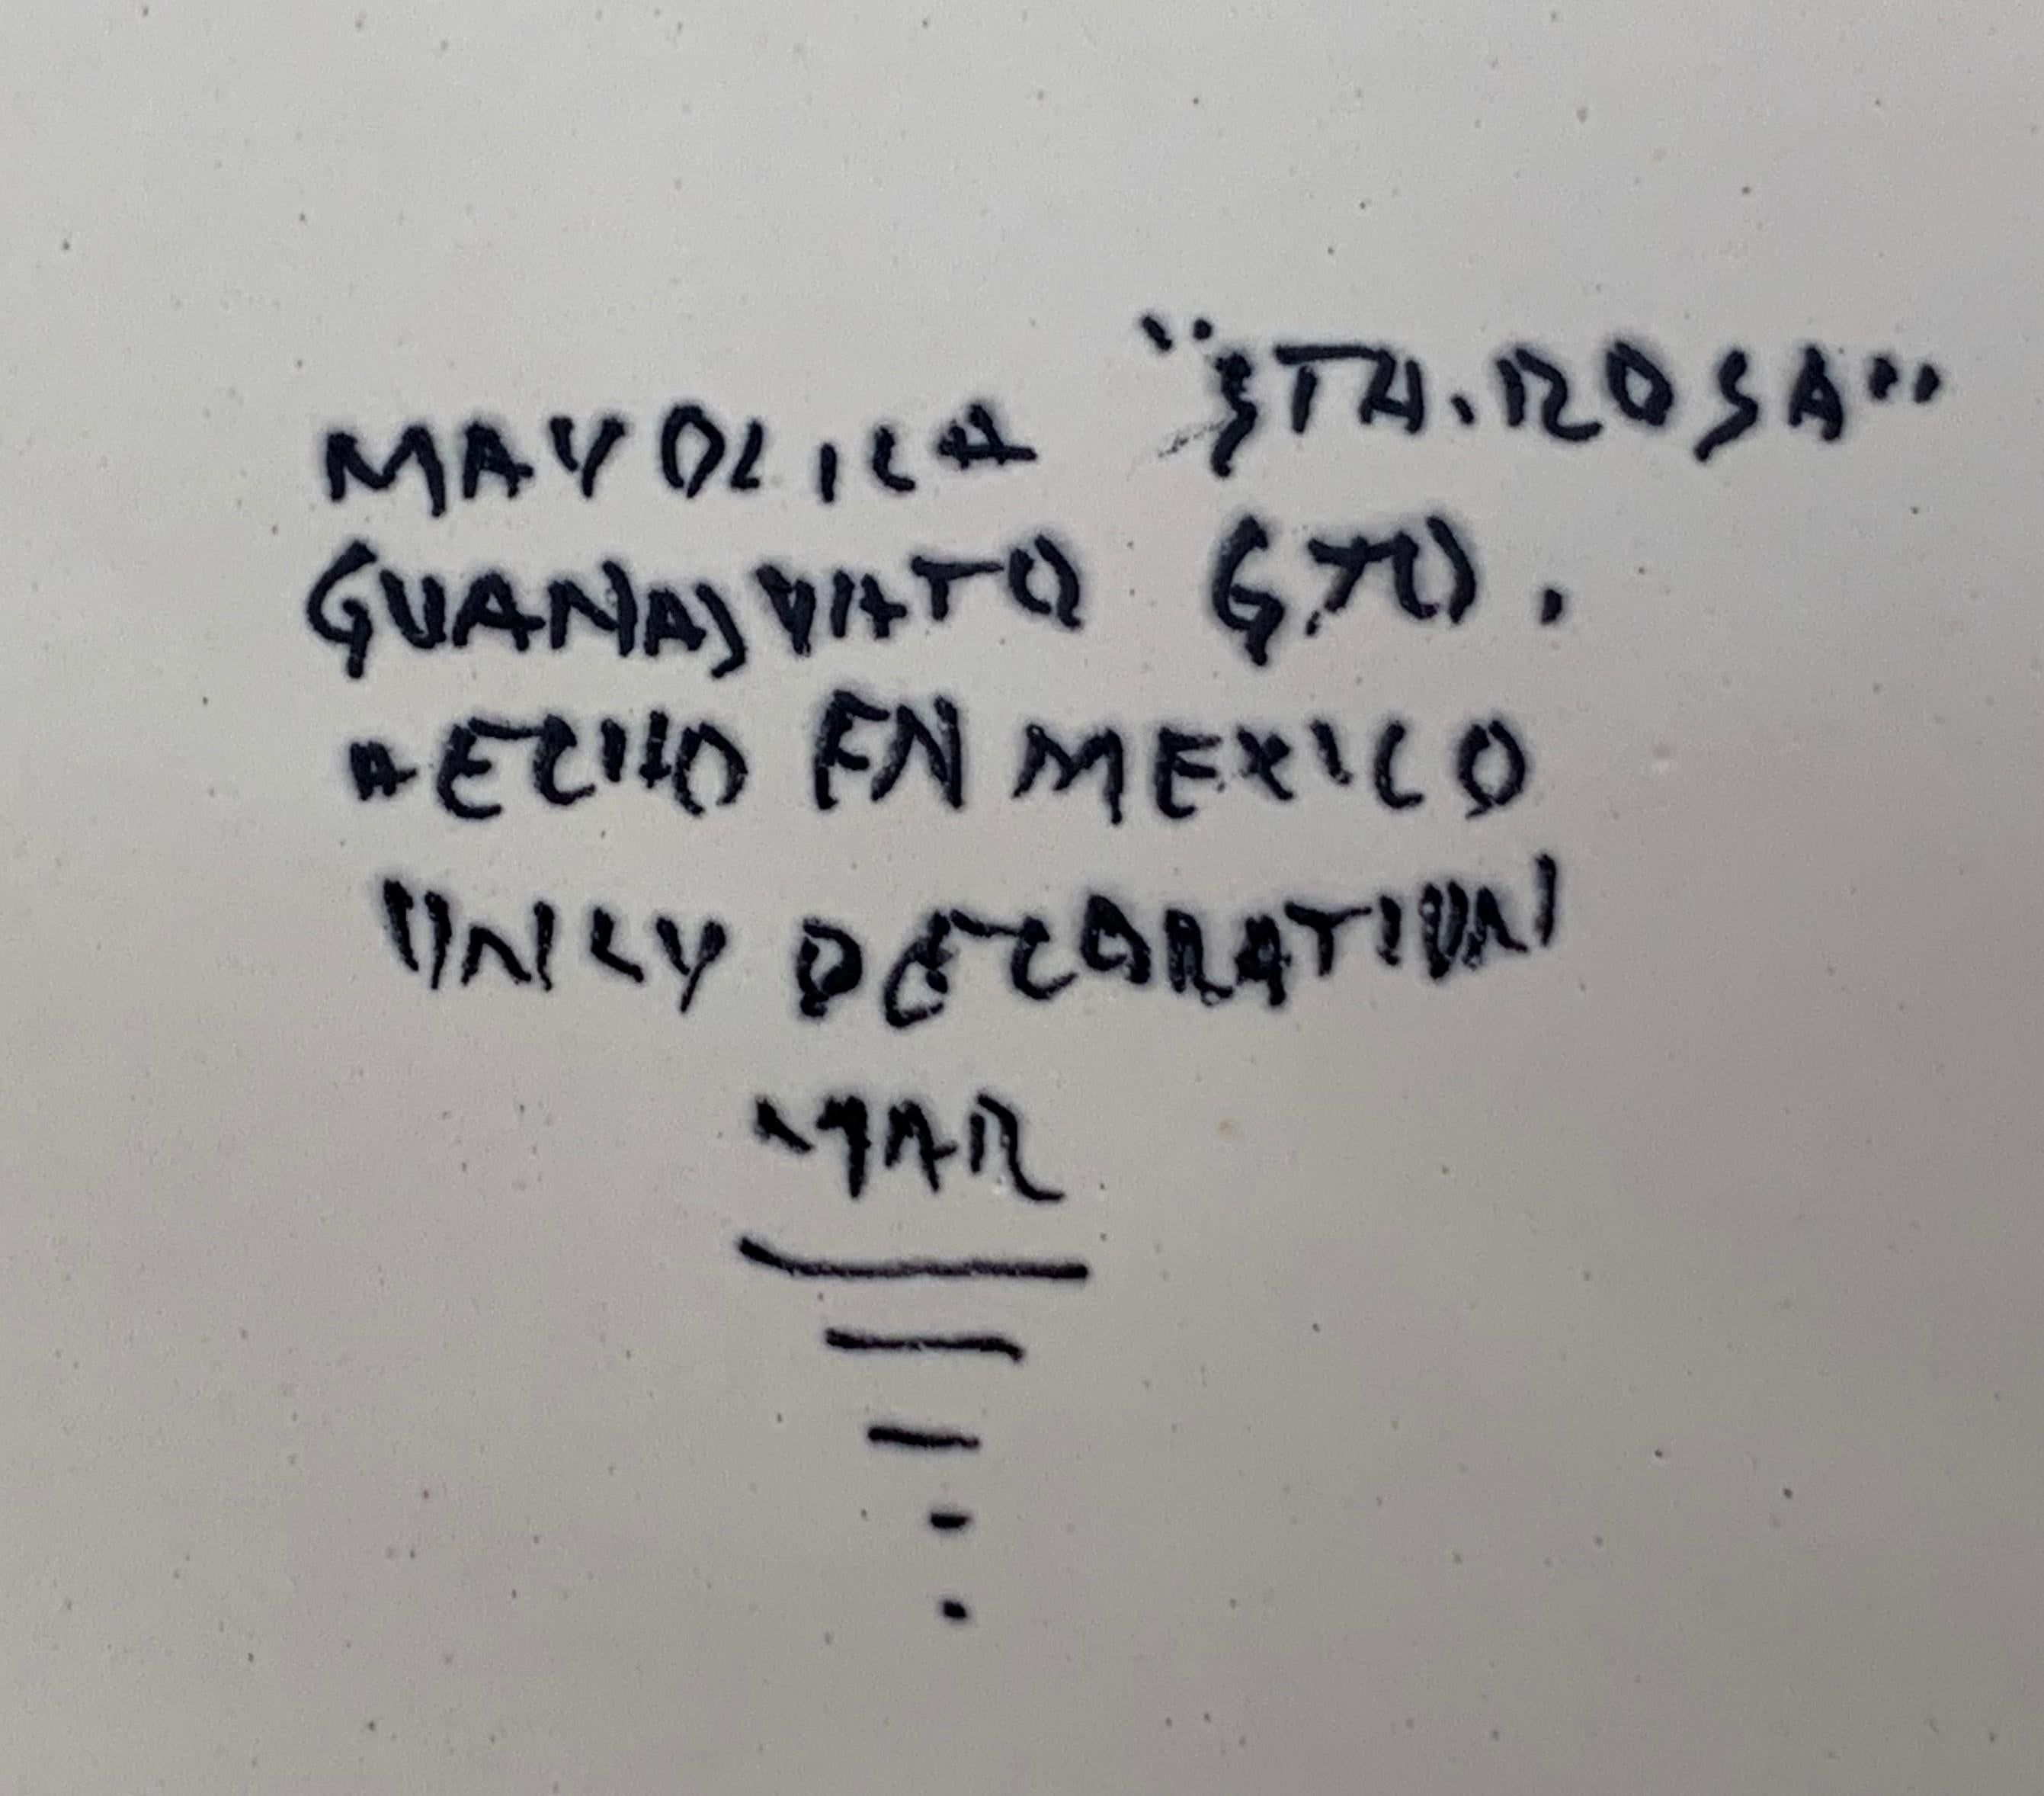 MAYOLICA "STA. ROSA"
GUANAJUATO GTO.
HECHO EN MEXICO
ONLY DECARATION
MAR